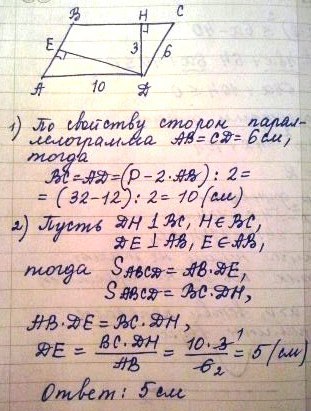 B H C
E 3 6
A 10 D
1) По свойству сторон парал-
лелограмма AB=CD=6см,
тогда
BC=AD=(P-2·AB):2=
=(32-12):2=10(см)
2) Пусть DH⊥BC, H∈BC,
DE⊥AB, E∈AB,
тогда S_ABCD=AB·DE,
S_ABCD=BC·DH,
AB·DE=BC·DH,
DE = BC·DH/AB = 10·3¹/6₂ = 5(см)
Ответ: 5см